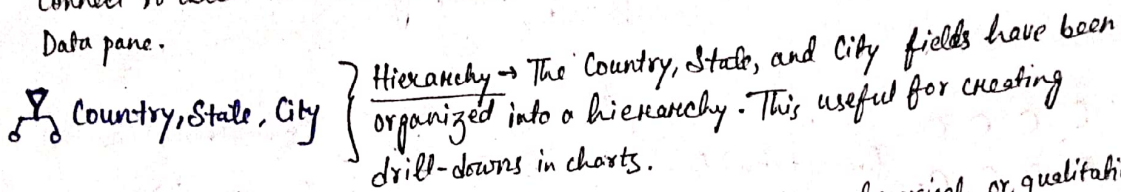 Data pane.
Country, State, City
Hierarchy → The Country, State, and City fields have been
organized into a hierarchy. This useful for creating
drill-downs in charts.
or qualitati